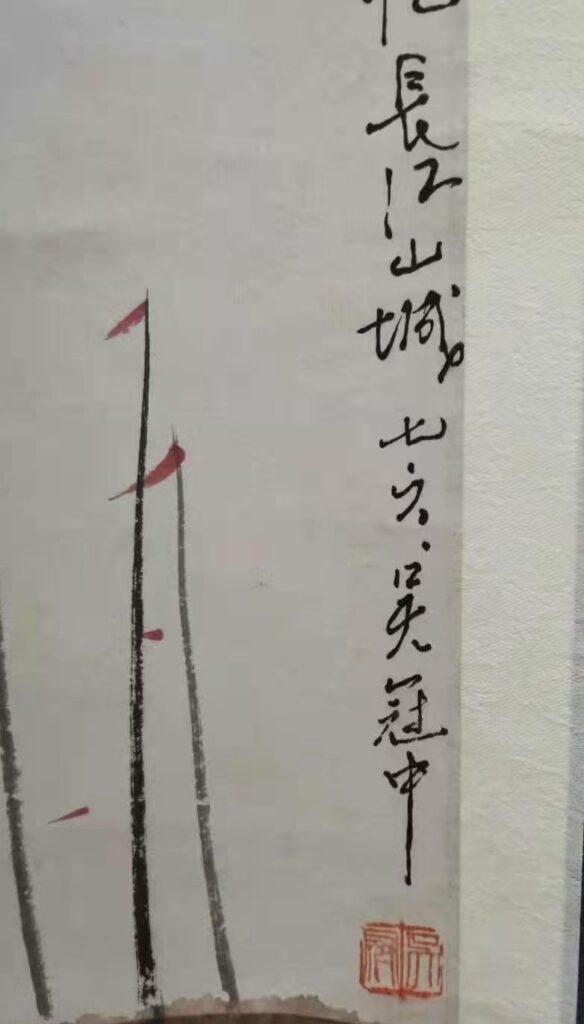 長江山城 七六.吴冠中